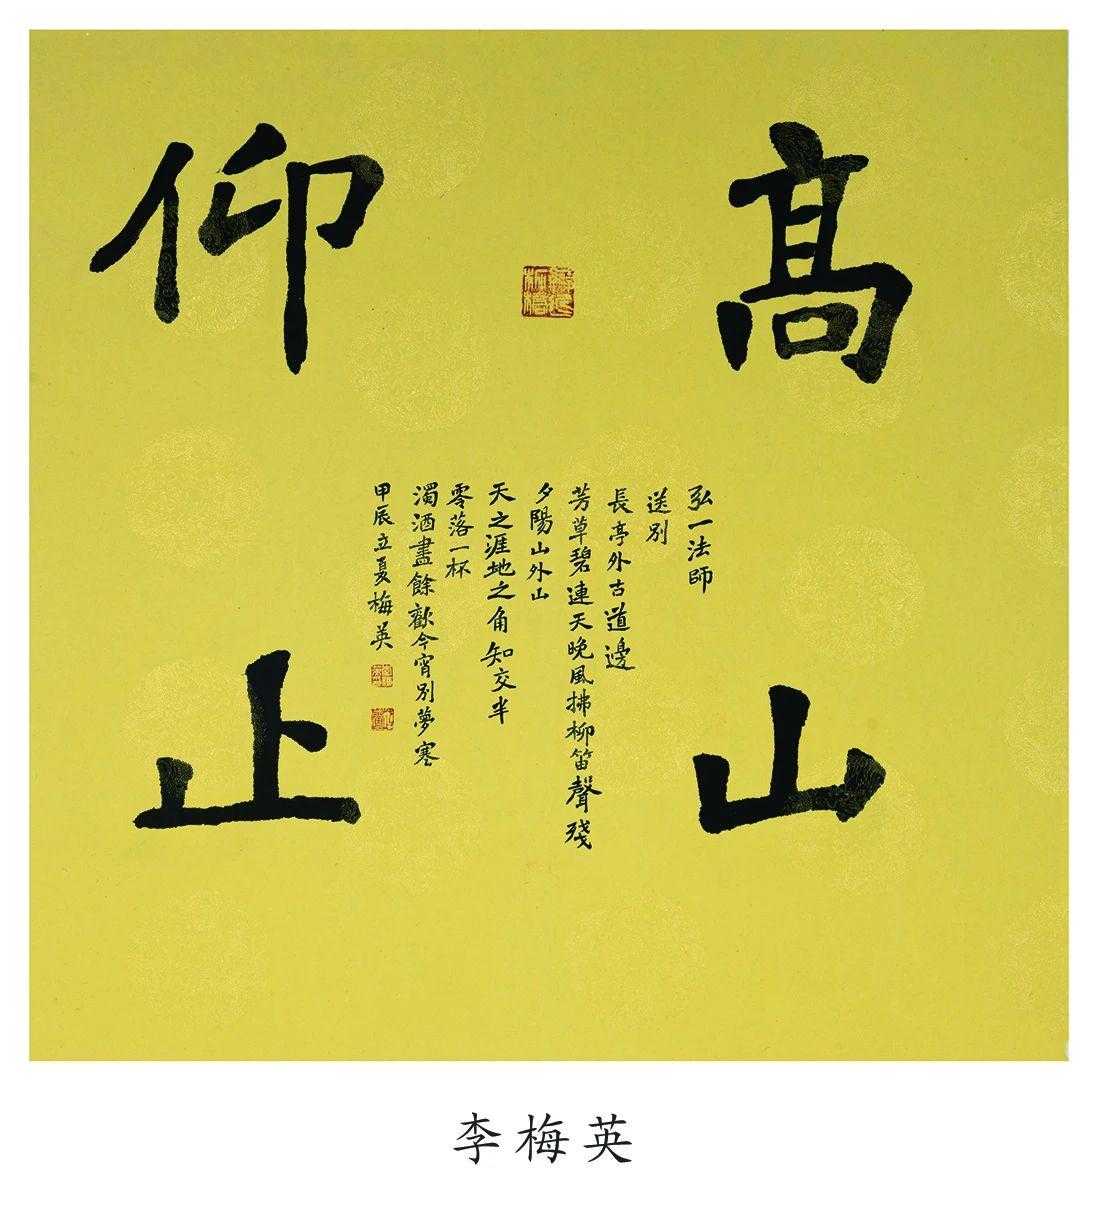 髙山
仰止
弘一法師
送別
長亭外古道邊
芳草碧連天晚風拂柳笛聲殘
夕陽山外山
天之涯地之角知交半
零落一杯
濁酒盡餘歡今宵別夢寒
甲辰立夏梅英
李梅英